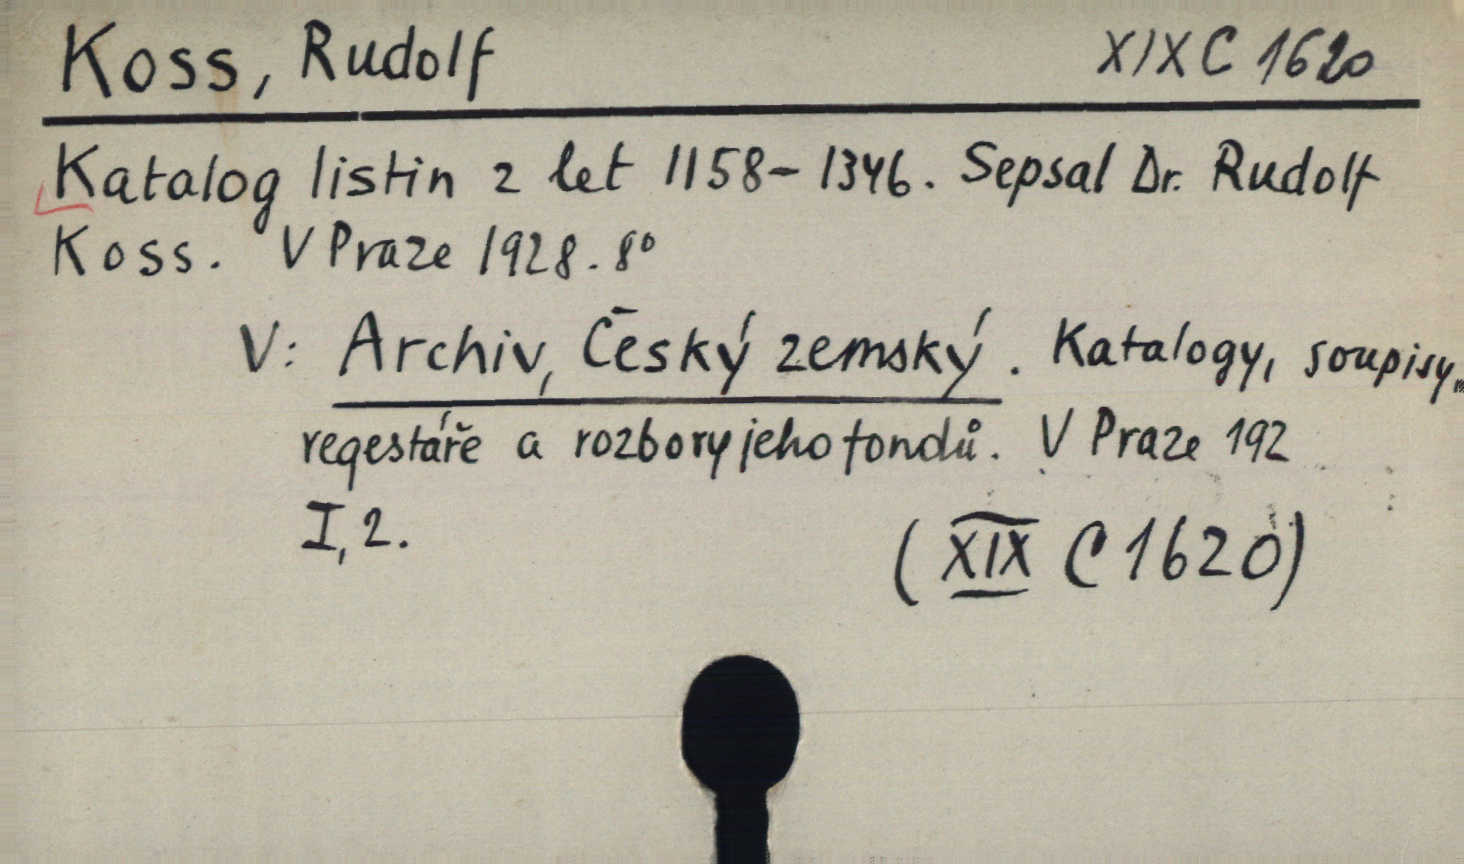 Koss, Rudolf XIX C 1620
Katalog listin z let 1158-1346. Sepsal Dr. Rudolf
Koss. V Praze 1928. 8°
V: Archiv, Český zemský. Katalogy, soupisy,
regestáře a rozbory jeho fondů. V Praze 192
I, 2. (XIX C 1620)